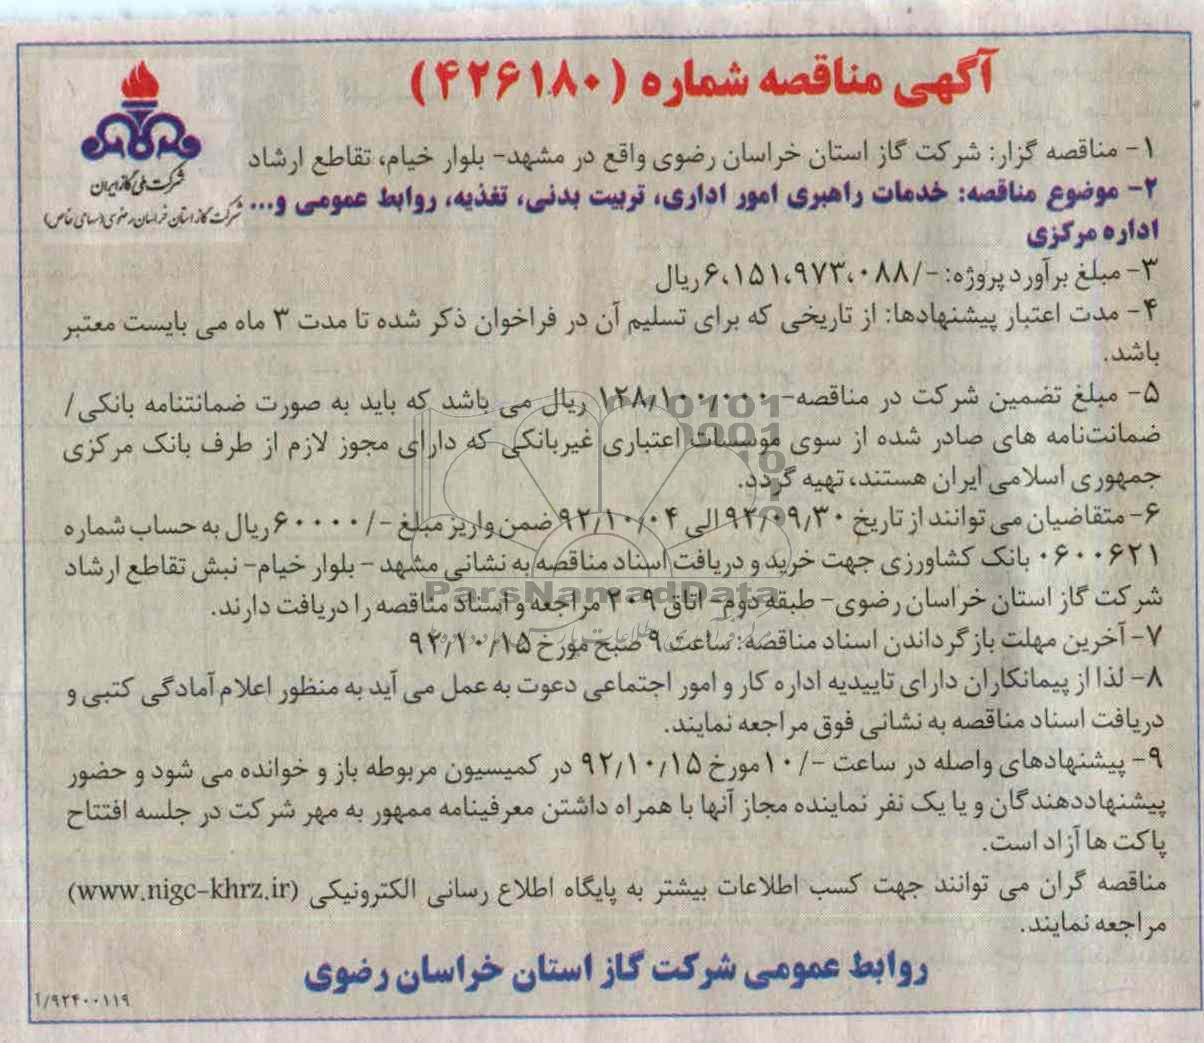 آگهی مناقصه شماره (۴۲۶۱۸۰)
شرکت ملی گاز ایران
شرکت گاز استان خراسان رضوی (سهامی خاص)
۱- مناقصه گزار: شرکت گاز استان خراسان رضوی واقع در مشهد- بلوار خیام، تقاطع ارشاد
۲- موضوع مناقصه: خدمات راهبری امور اداری، تربیت بدنی، تغذیه، روابط عمومی و...
اداره مرکزی
۳- مبلغ برآورد پروژه: -/۶،۱۵۱،۹۷۳،۰۸۸ ریال
۴- مدت اعتبار پیشنهادها: از تاریخی که برای تسلیم آن در فراخوان ذکر شده تا مدت ۳ ماه می بایست معتبر
باشد.
۵- مبلغ تضمین شرکت در مناقصه- ۱۲۸/۱۰۰/۰۰۰ ریال می باشد که باید به صورت ضمانتنامه بانکی/
ضمانت‌نامه های صادر شده از سوی موسسات اعتباری غیربانکی که دارای مجوز لازم از طرف بانک مرکزی
جمهوری اسلامی ایران هستند، تهیه گردد.
۶- متقاضیان می توانند از تاریخ ۹۲/۰۹/۳۰ الی ۹۲/۱۰/۰۴ ضمن واریز مبلغ -/۶۰۰۰۰۰ ریال به حساب شماره
۰۶۰۰۶۲۱ بانک کشاورزی جهت خرید و دریافت اسناد مناقصه به نشانی مشهد - بلوار خیام- نبش تقاطع ارشاد
شرکت گاز استان خراسان رضوی- طبقه دوم- اتاق ۲۰۹ مراجعه و اسناد مناقصه را دریافت دارند.
ParsNamadData
۷- آخرین مهلت بازگرداندن اسناد مناقصه: ساعت ۹ صبح مورخ ۹۲/۱۰/۱۵
۸- لذا از پیمانکاران دارای تاییدیه اداره کار و امور اجتماعی دعوت به عمل می آید به منظور اعلام آمادگی کتبی و
دریافت اسناد مناقصه به نشانی فوق مراجعه نمایند.
۹- پیشنهادهای واصله در ساعت -/۱۰ مورخ ۹۲/۱۰/۱۵ در کمیسیون مربوطه باز و خوانده می شود و حضور
پیشنهاددهندگان و یا یک نفر نماینده مجاز آنها با همراه داشتن معرفینامه ممهور به مهر شرکت در جلسه افتتاح
پاکت ها آزاد است.
مناقصه گران می توانند جهت کسب اطلاعات بیشتر به پایگاه اطلاع رسانی الکترونیکی (www.nigc-khrz.ir)
مراجعه نمایند.
روابط عمومی شرکت گاز استان خراسان رضوی
۹۲۴۰۰۱۱۹/آ